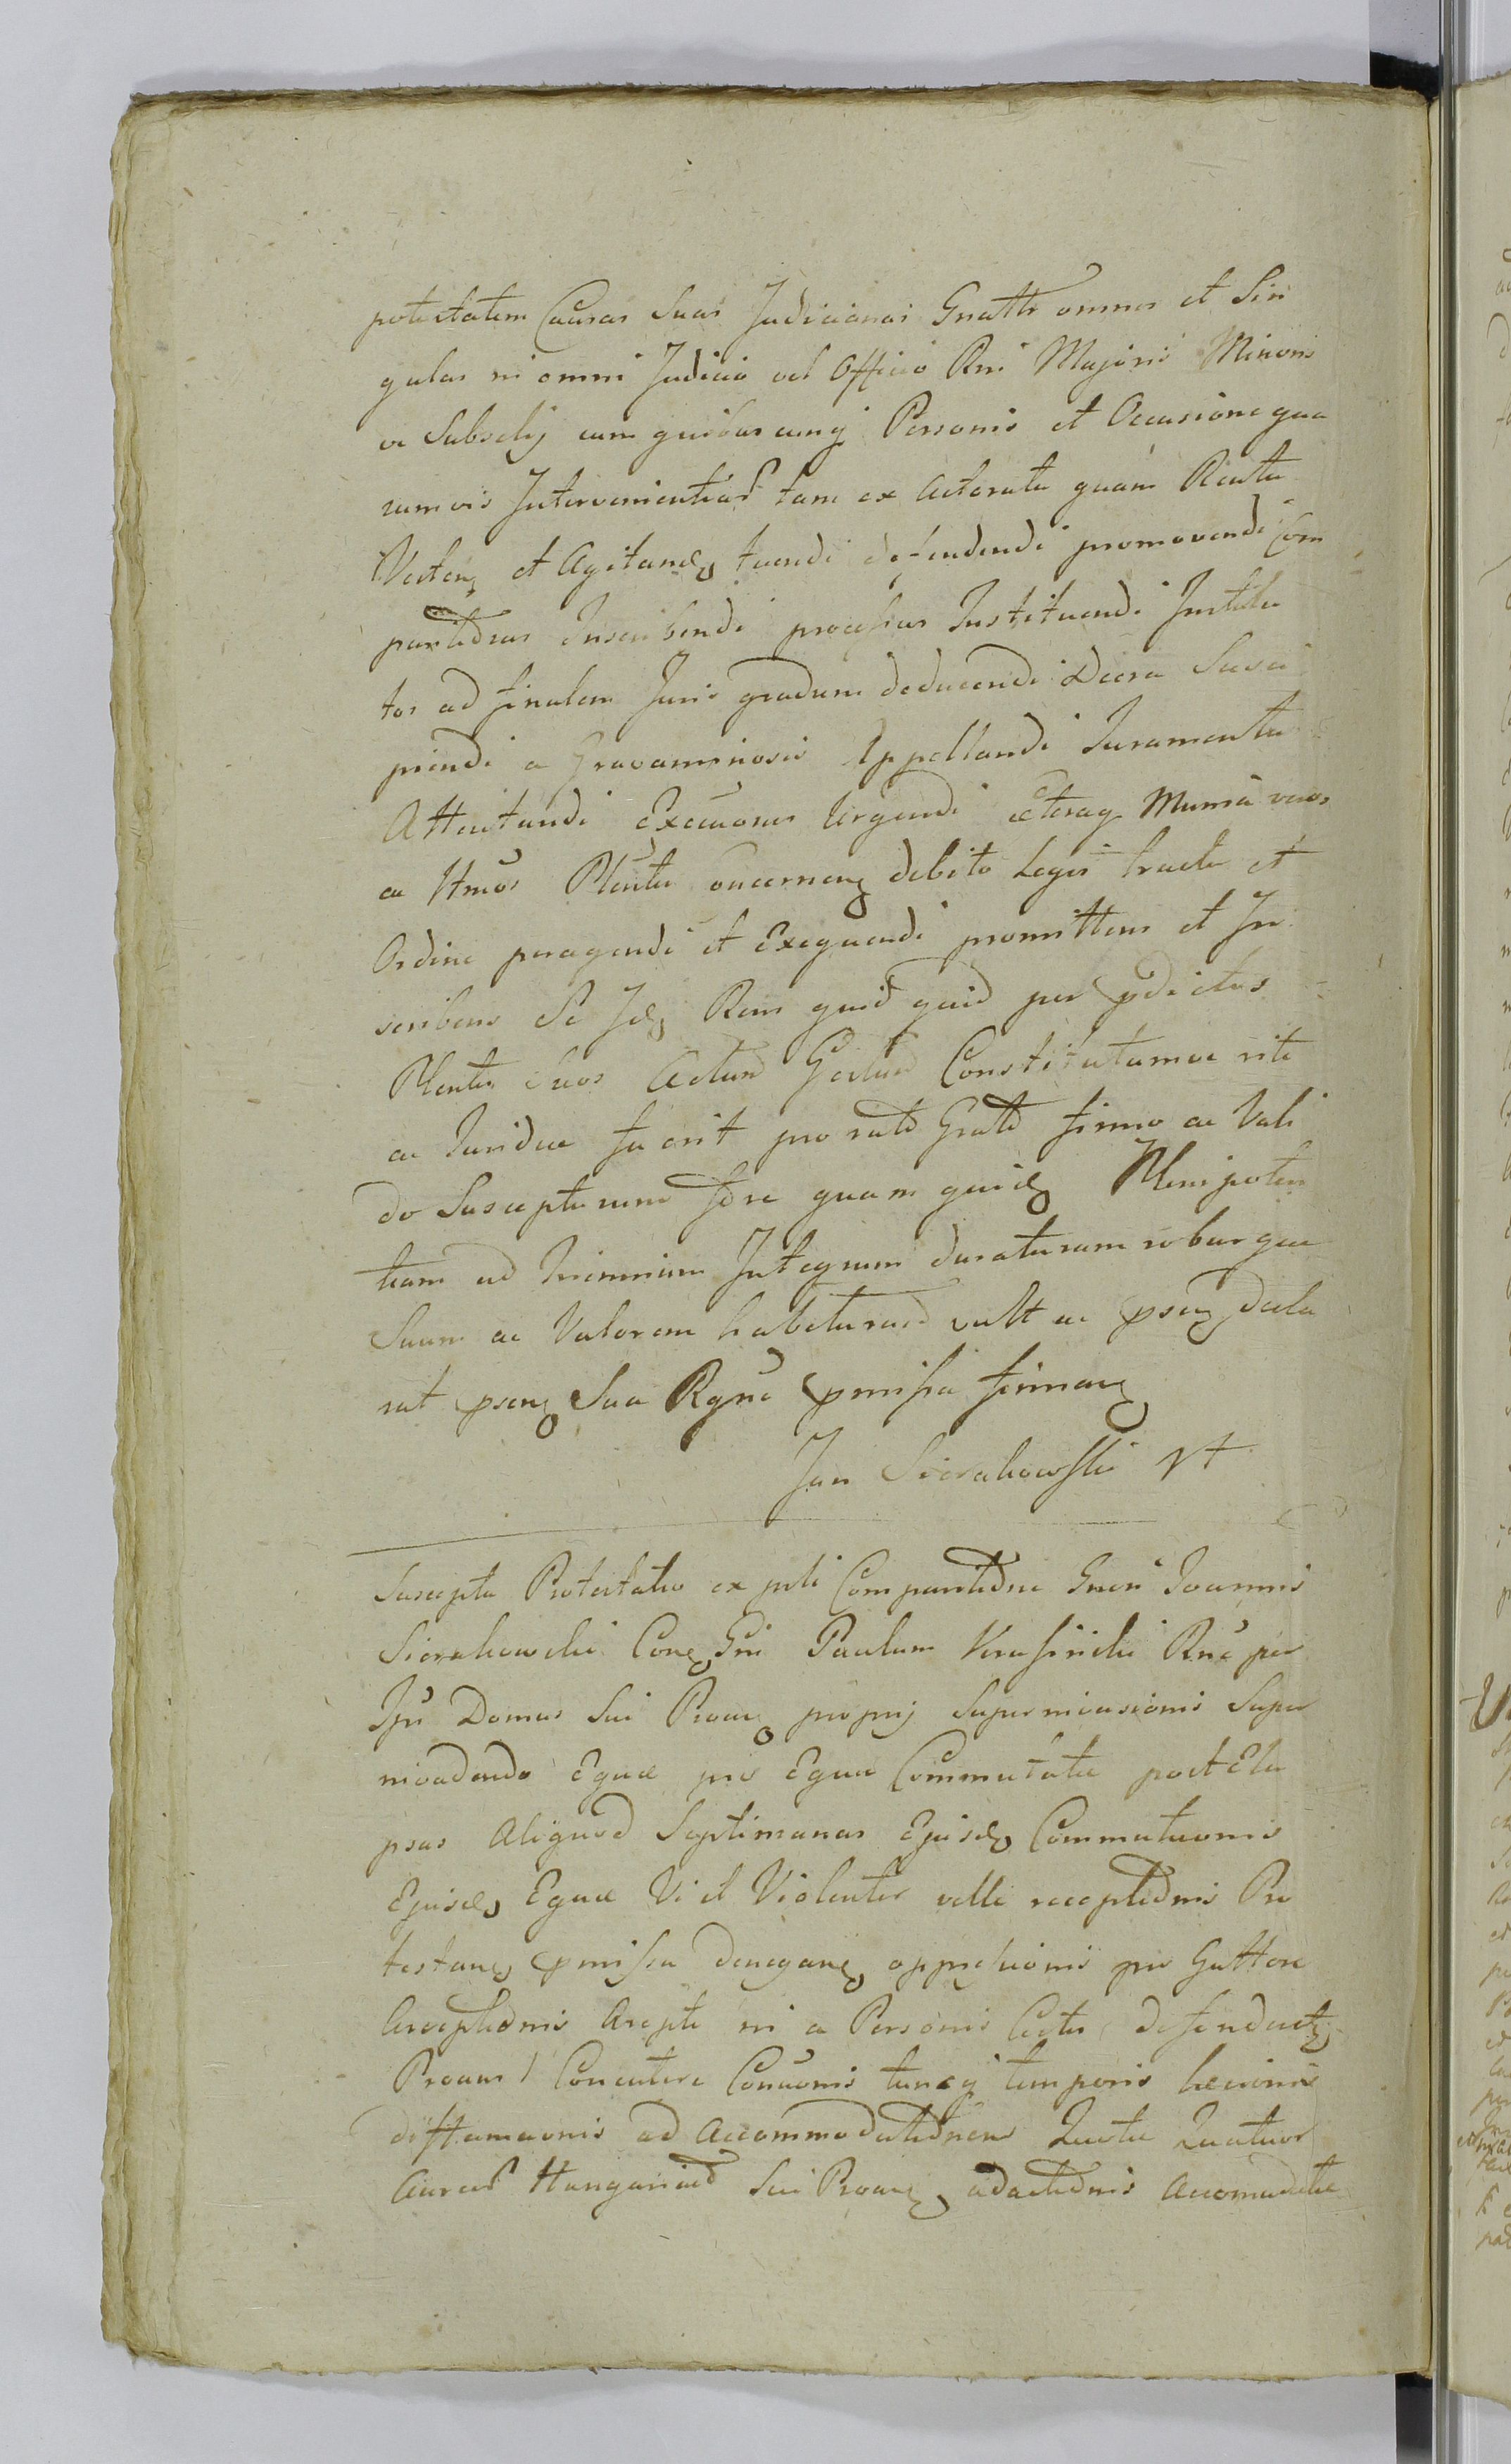 potestatem Causas Suas Judiciarias Gnatr omnes et Sin
gulas in omni Judicio vel Officio Rni Majoris Minoris
ve Subselij cum quibuscunq Personis et Occasione qua
rumvis Intervenientiar tam ex Actoratu quam Reatu
Verten et Agitand tuendi defendendi promovendi Com
paritiones Inscribendi processus Instituendi Institu
tos ad finalem Juris gradum deducendi Decra Susci
piendi a Gravaminosis Appellandi Juramenta
Attentandi Execuones Urgendi ceteraq Munia veros
ac Ittmos Plentes concernen debito Legis tractu et
Ordine peragendi et Exequendi promittens et In
scribens Se Id Rem quid quid per pdictos
Plentes Suos Actum Gestum Constitutumve rite
ac Juridice fuerit pro rato Grato firmo ac Vali
do Suscepturum fore quam quid Plenipoten
tiam ad Triennium Integrum duraturam roburque
Suum ac Valorem habituram vult ac psen decla
rat psen Sua Rgne pmissa firman
Jan Sierakowski
Suscepta Protestatio ex prti Comparitione Gnen Joannis
Sierakowski Con Gni Paulum Krasinski Rne per
Ipm Domus Sui Proan proprij Supermicusionis Super
nivadendo Equae pro Equa Commutatae post Ela
psas Aliquod Septimanas Ejusd Commutaonis
Ejusd Equae Vi et Violenter velle receptionis Pro
testan pmissa denegan oppressionis pro Guttore
Arreptionis Arepti ni a Personis Certis defenderet
Proan Concutere Conuonis tuncq temporis Lecionis
diffamaonis ad Accommodationem Quota Quatuor
Aureor Hungaricor Sui Proan adactionis Accomodatae